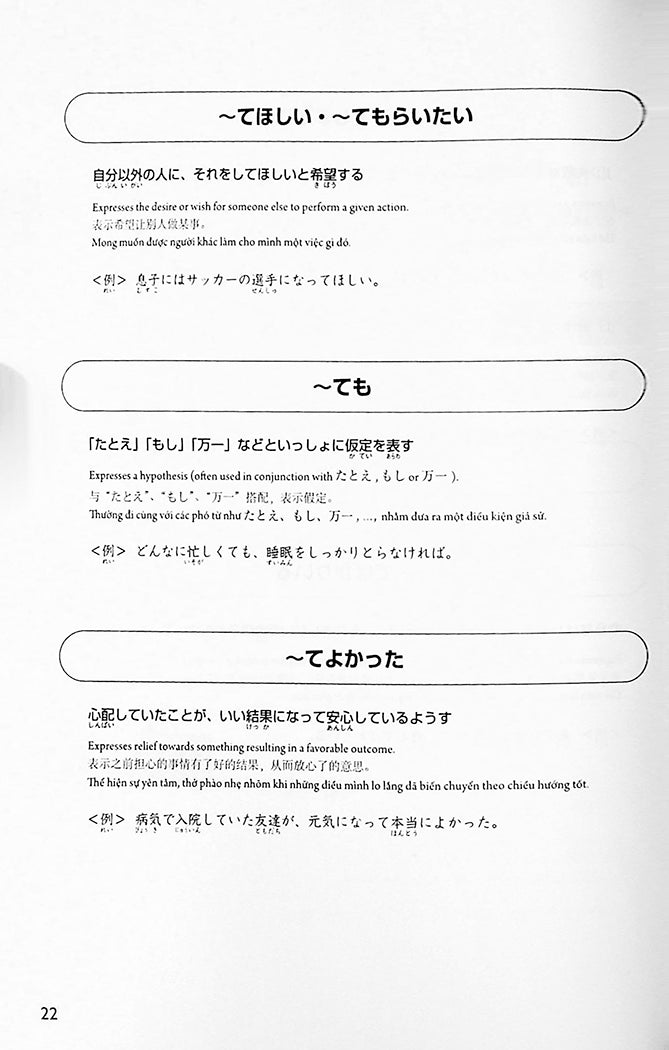 ～てほしい・～てもらいたい
自分以外の人に、それをしてほしいと希望する
じぶんいがい きぼう
Expresses the desire or wish for someone else to perform a given action.
表示希望让别人做某事。
Mong muốn được người khác làm cho mình một việc gì đó.
＜例＞ 息子にはサッカーの選手になってほしい。
れい むすこ せんしゅ
～ても
「たとえ」「もし」「万一」などといっしょに仮定を表す
かてい あらわ
Expresses a hypothesis (often used in conjunction with たとえ , もし or 万一 ).
与“たとえ”、“もし”、“万一”搭配，表示假定。
Thường đi cùng với các phó từ như たとえ、もし、万一 , …, nhằm đưa ra một điều kiện giả sử.
＜例＞ どんなに忙しくても、睡眠をしっかりとらなければ。
れい いそが すいみん
～てよかった
心配していたことが、いい結果になって安心しているようす
しんぱい けっか あんしん
Expresses relief towards something resulting in a favorable outcome.
表示之前担心的事情有了好的结果，从而放心了的意思。
Thể hiện sự yên tâm, thở phào nhẹ nhõm khi những điều mình lo lắng đã biến chuyển theo chiều hướng tốt.
＜例＞ 病気で入院していた友達が、元気になって本当によかった。
れい びょうき にゅういん ともだち ほんとう
22